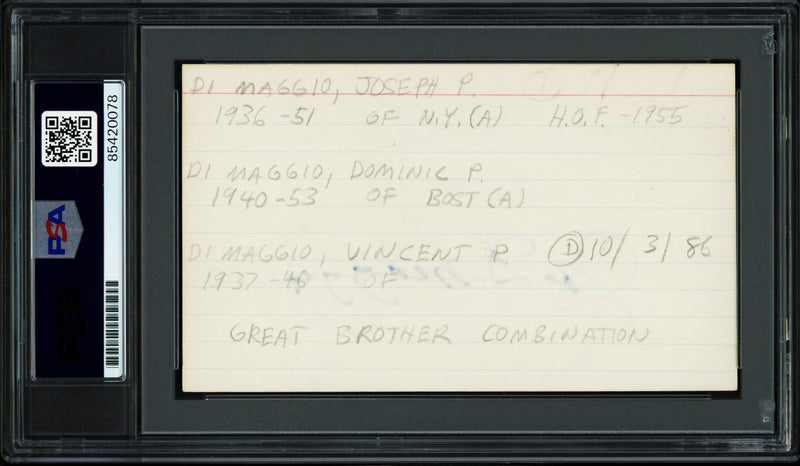 DI MAGGIO, JOSEPH P.
1936-51 OF N.Y.(A) H.O.F. -1955
DI MAGGIO, DOMINIC P.
1940-53 OF BOST(A)
DI MAGGIO, VINCENT P. D 10/3/86
1937-46 OF
GREAT BROTHER COMBINATION
85420078
PSA